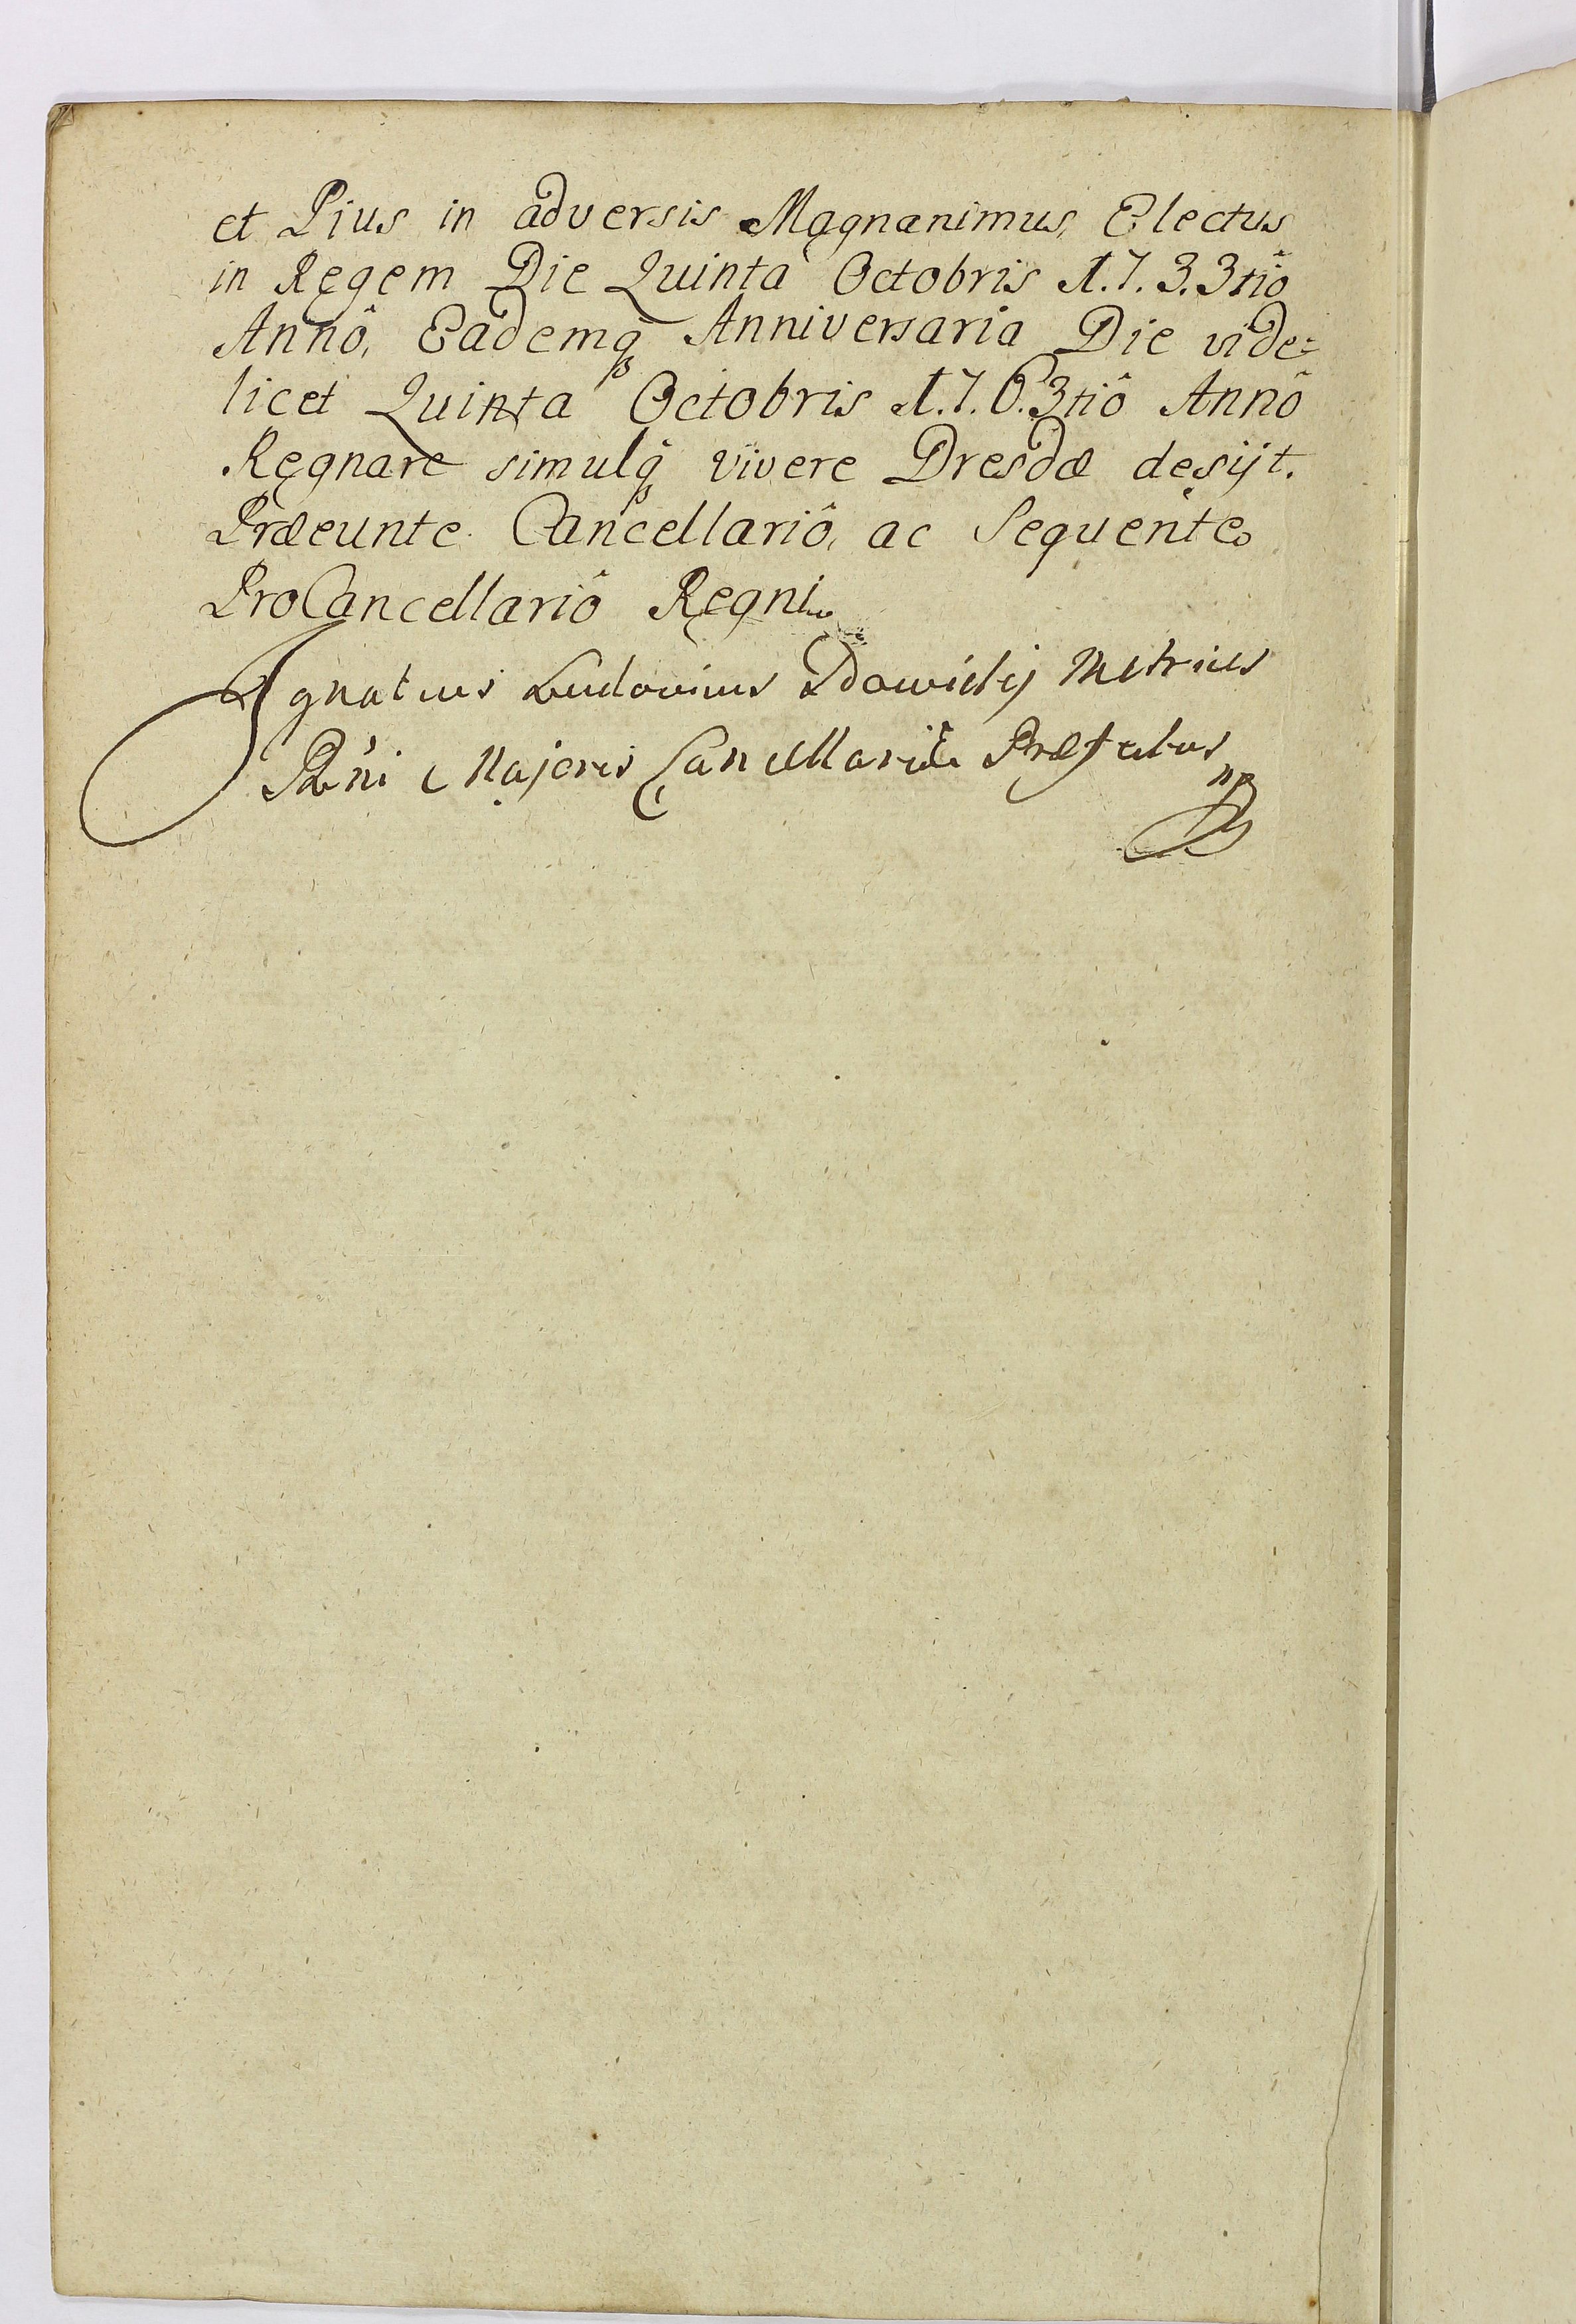 et Pius in adversis Magnanimus, Electus
in Regem Die Quinta Octobris 1.7.3.3tiô
Annô, Eademq́ꝫ Anniversaria Die vide⸗
licet Quinta Octobris 1.7.6.3tiô Annô
Regnare simulq́ꝫ vivere Dresdæ desijt.
Præeunte Cancellariô, ac Sequente
ProCancellariô Regni
Ignatius Ludovicus Metrices
Rni Majoris Cancellariæ Præfectus
mp